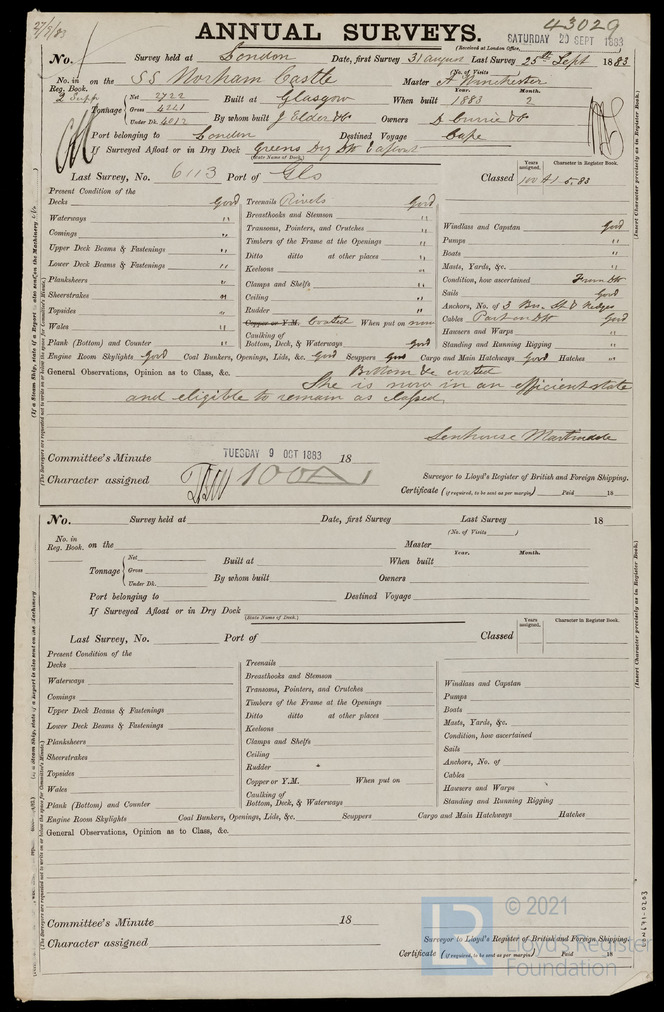 27/9/83
ANNUAL SURVEYS.
43029
(Received at London Office,
SATURDAY 29 SEPT 1883
No. Survey held at London Date, first Survey 31 August Last Survey 25th Sept 1883
(No. of Visits
No. in Reg. Book. on the SS Norham Castle Master A Winchester
2 Supp
Year. Month.
Tonnage Net 2722 Built at Glasgow When built 1883 2
Gross 4241
Under Dk. 4012 By whom built J Elder & Co Owners D Currie & Co
Port belonging to London Destined Voyage Cape
If Surveyed Afloat or in Dry Dock Greens Dry Dk & afloat
(State Name of Dock.)
Years assigned. Character in Register Book.
Last Survey, No. 6113 Port of Gls Classed 100 A1 5.83
Present Condition of the
Decks Good Treenails Rivets Good
Waterways " Breasthooks and Stemson " Windlass and Capstan Good
Comings " Transoms, Pointers, and Crutches " Pumps "
Upper Deck Beams & Fastenings " Timbers of the Frame at the Openings " Boats "
Lower Deck Beams & Fastenings " Ditto ditto at other places " Masts, Yards, &c. "
Planksheers " Keelsons " Condition, how ascertained From Dk
Sheerstrakes " Clamps and Shelfs " Sails Good
Topsides " Ceiling " Anchors, No. of 3 Brs. St & Kedges
Wales " Rudder " Cables Part on Dk Good
Plank (Bottom) and Counter " Copper or Y.M. Coated When put on now Hawsers and Warps "
Caulking of Bottom, Deck, & Waterways Good Standing and Running Rigging "
Engine Room Skylights Good Coal Bunkers, Openings, Lids, &c. Good Scuppers Good Cargo and Main Hatchways Good Hatches "
General Observations, Opinion as to Class, &c. Bottom &c coated
She is now in an efficient state
and eligible to remain as classed.
Senhouse Martindale
Committee's Minute TUESDAY 9 OCT 1883 18
Character assigned 100A
Surveyor to Lloyd's Register of British and Foreign Shipping.
Certificate (if required, to be sent as per margin) Paid 18
(If a Steam Ship, state if a Report is also sent on the Machinery
(The Surveyors are requested not to write on or below the space for Committee's Minute.)
(Insert Character precisely as in Register Book.)
No. Survey held at Date, first Survey Last Survey 18
(No. of Visits )
No. in Reg. Book. on the Master
Year. Month.
Tonnage Net Built at When built
Gross
Under Dk. By whom built Owners
Port belonging to Destined Voyage
If Surveyed Afloat or in Dry Dock
(State Name of Dock.)
Years assigned. Character in Register Book.
Last Survey, No. Port of Classed
Present Condition of the
Decks Treenails
Waterways Breasthooks and Stemson Windlass and Capstan
Comings Transoms, Pointers, and Crutches Pumps
Upper Deck Beams & Fastenings Timbers of the Frame at the Openings Boats
Lower Deck Beams & Fastenings Ditto ditto at other places Masts, Yards, &c.
Planksheers Keelsons Condition, how ascertained
Sheerstrakes Clamps and Shelfs Sails
Topsides Ceiling Anchors, No. of
Wales Rudder Cables
Plank (Bottom) and Counter Copper or Y.M. When put on Hawsers and Warps
Caulking of Bottom, Deck, & Waterways Standing and Running Rigging
Engine Room Skylights Coal Bunkers, Openings, Lids, &c. Scuppers Cargo and Main Hatchways Hatches
General Observations, Opinion as to Class, &c.
Committee's Minute 18
Character assigned
Surveyor to Lloyd's Register of British and Foreign Shipping.
Certificate (if required, to be sent as per margin) Paid 18
(The Surveyors are requested not to write on or below the space for Committee's Minute.)
(Insert Character precisely as in Register Book.)
LR
© 2021
Lloyd's Register
Foundation